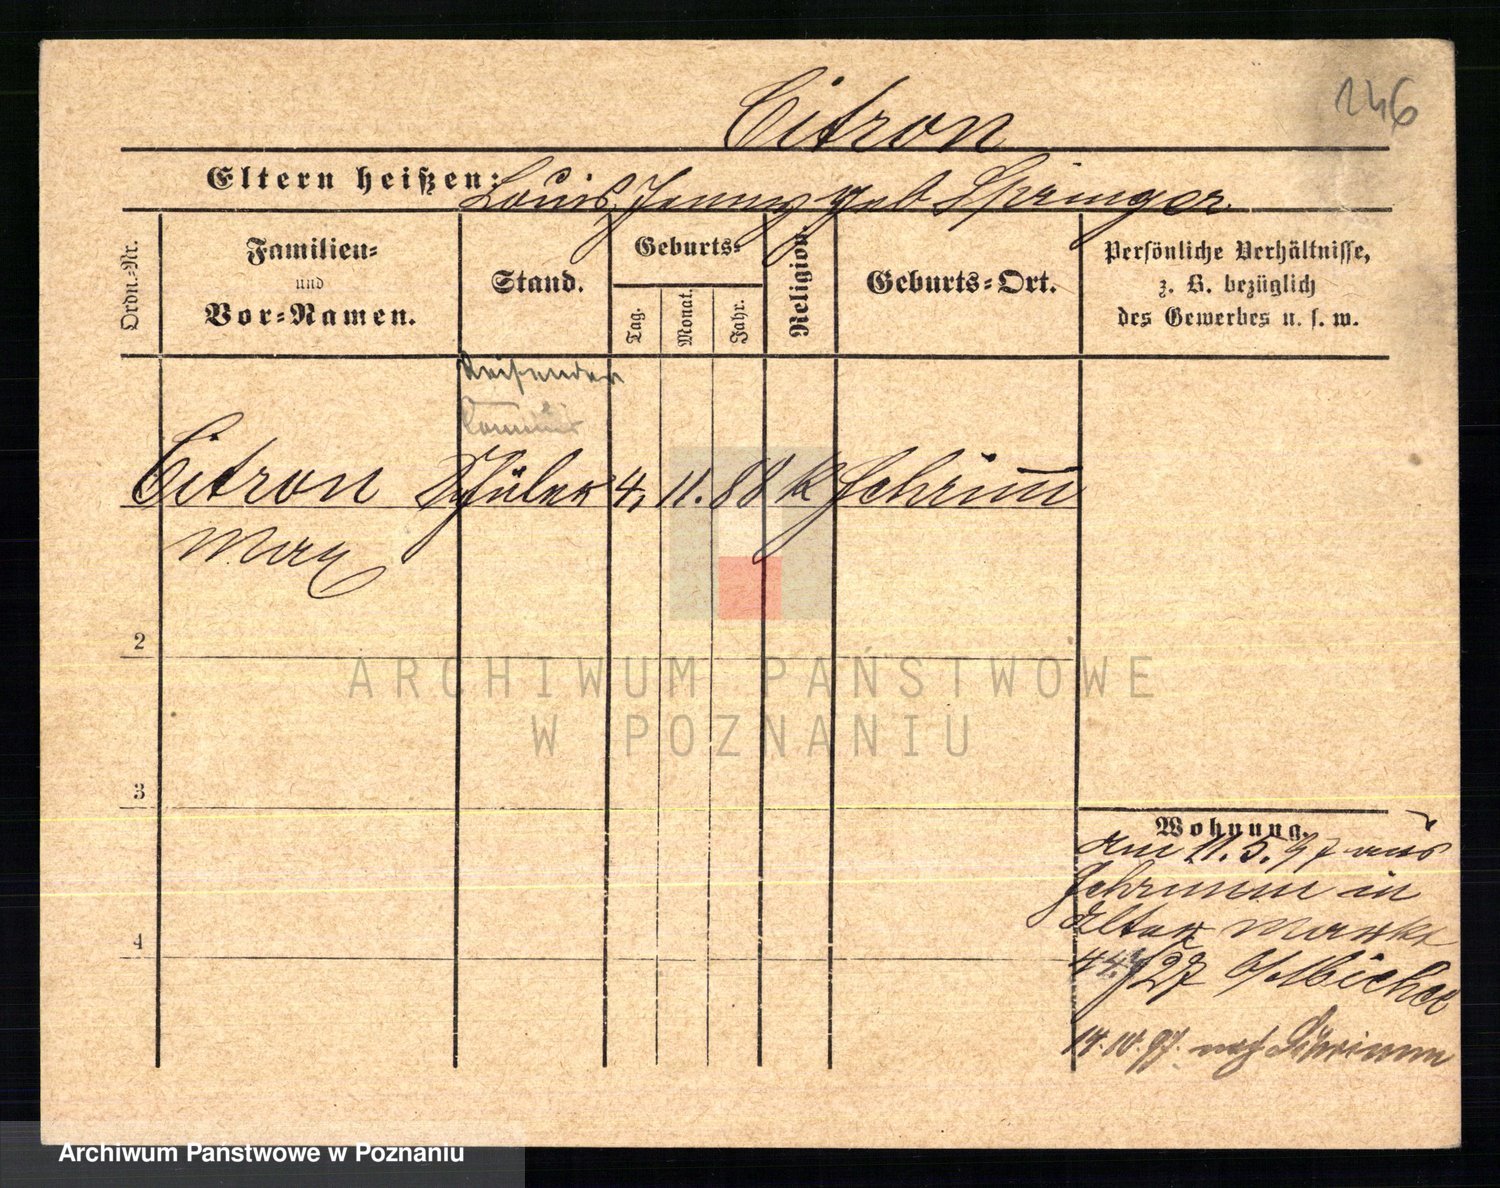 146
Citron
Eltern heißen: Louis, Jenny geb Springer
Ordn.-Nr.
Familien-
und
Vor-Namen.
Stand.
Geburts-
Tag.
Monat.
Jahr.
Religion.
Geburts-Ort.
Persönliche Verhältnisse,
z. B. bezüglich
des Gewerbes u. s. w.
Reisender
Commis
Citron Schüler 4. 11. 88 Schrimm
Max
2
3
4
Wohnung.
am 11.5.97 aus
Schrimm in
Alter Markt
27 b/Michel
14.10.97. nach Schrimm
ARCHIWUM PAŃSTWOWE
W POZNANIU
Archiwum Państwowe w Poznaniu